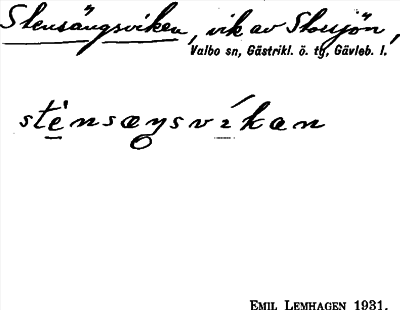 Stensängsviken, vik av Storsjön,
Valbo sn, Gästrikl. ö. tg, Gävleb. l.
stènsæŋsvíkan
EMIL LEMHAGEN 1931.